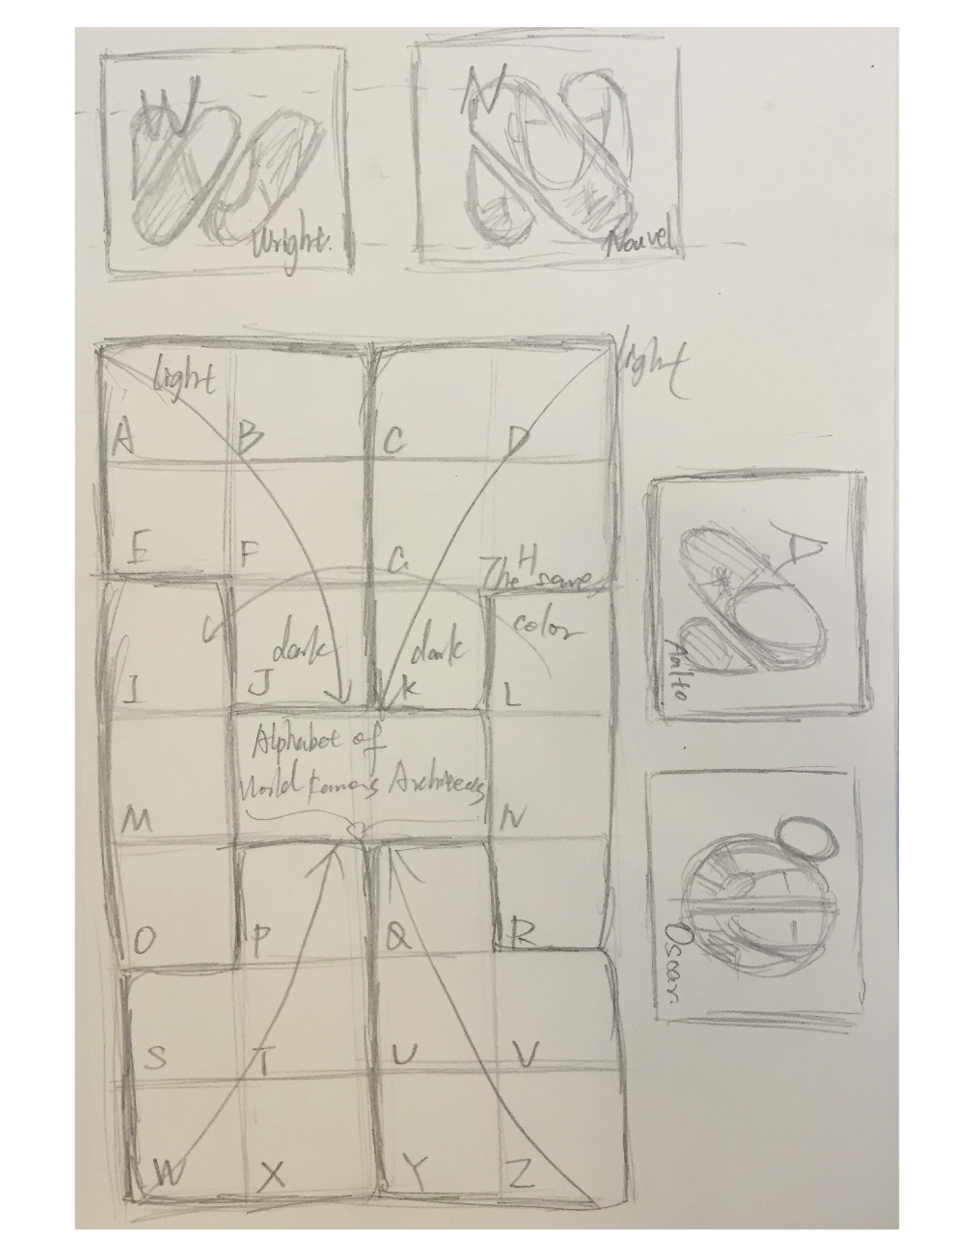 W
Wright.
N
Nouvel
light
light
A
B
C
D
E
F
G
H
The same
color
I
J
dark
dark
K
L
Alphabet of
World Famous Architects
M
N
O
P
Q
R
S
T
U
V
W
X
Y
Z
A
Aalto
Oscar.